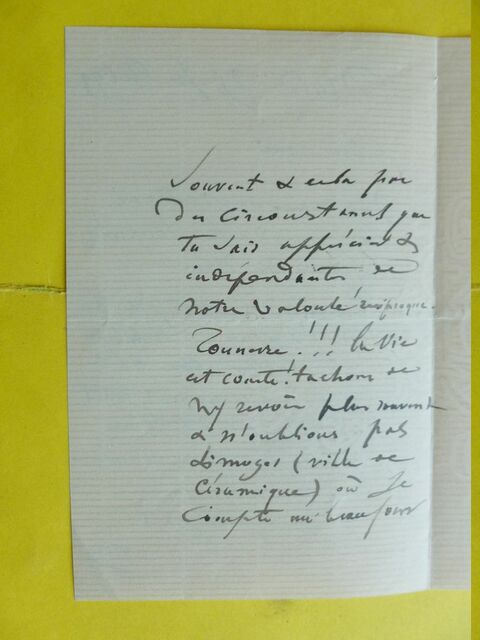 Souvent & cela par
des circonstances que
tu sais apprécier &
indépendantes de
notre volonté réciproque.
Tonnerre! !!! la vie
est courte! tachons de
ny revoir plus souvent
& n'oublions pas
Limoges (ville de
Céramique) où je
compte un beau jour